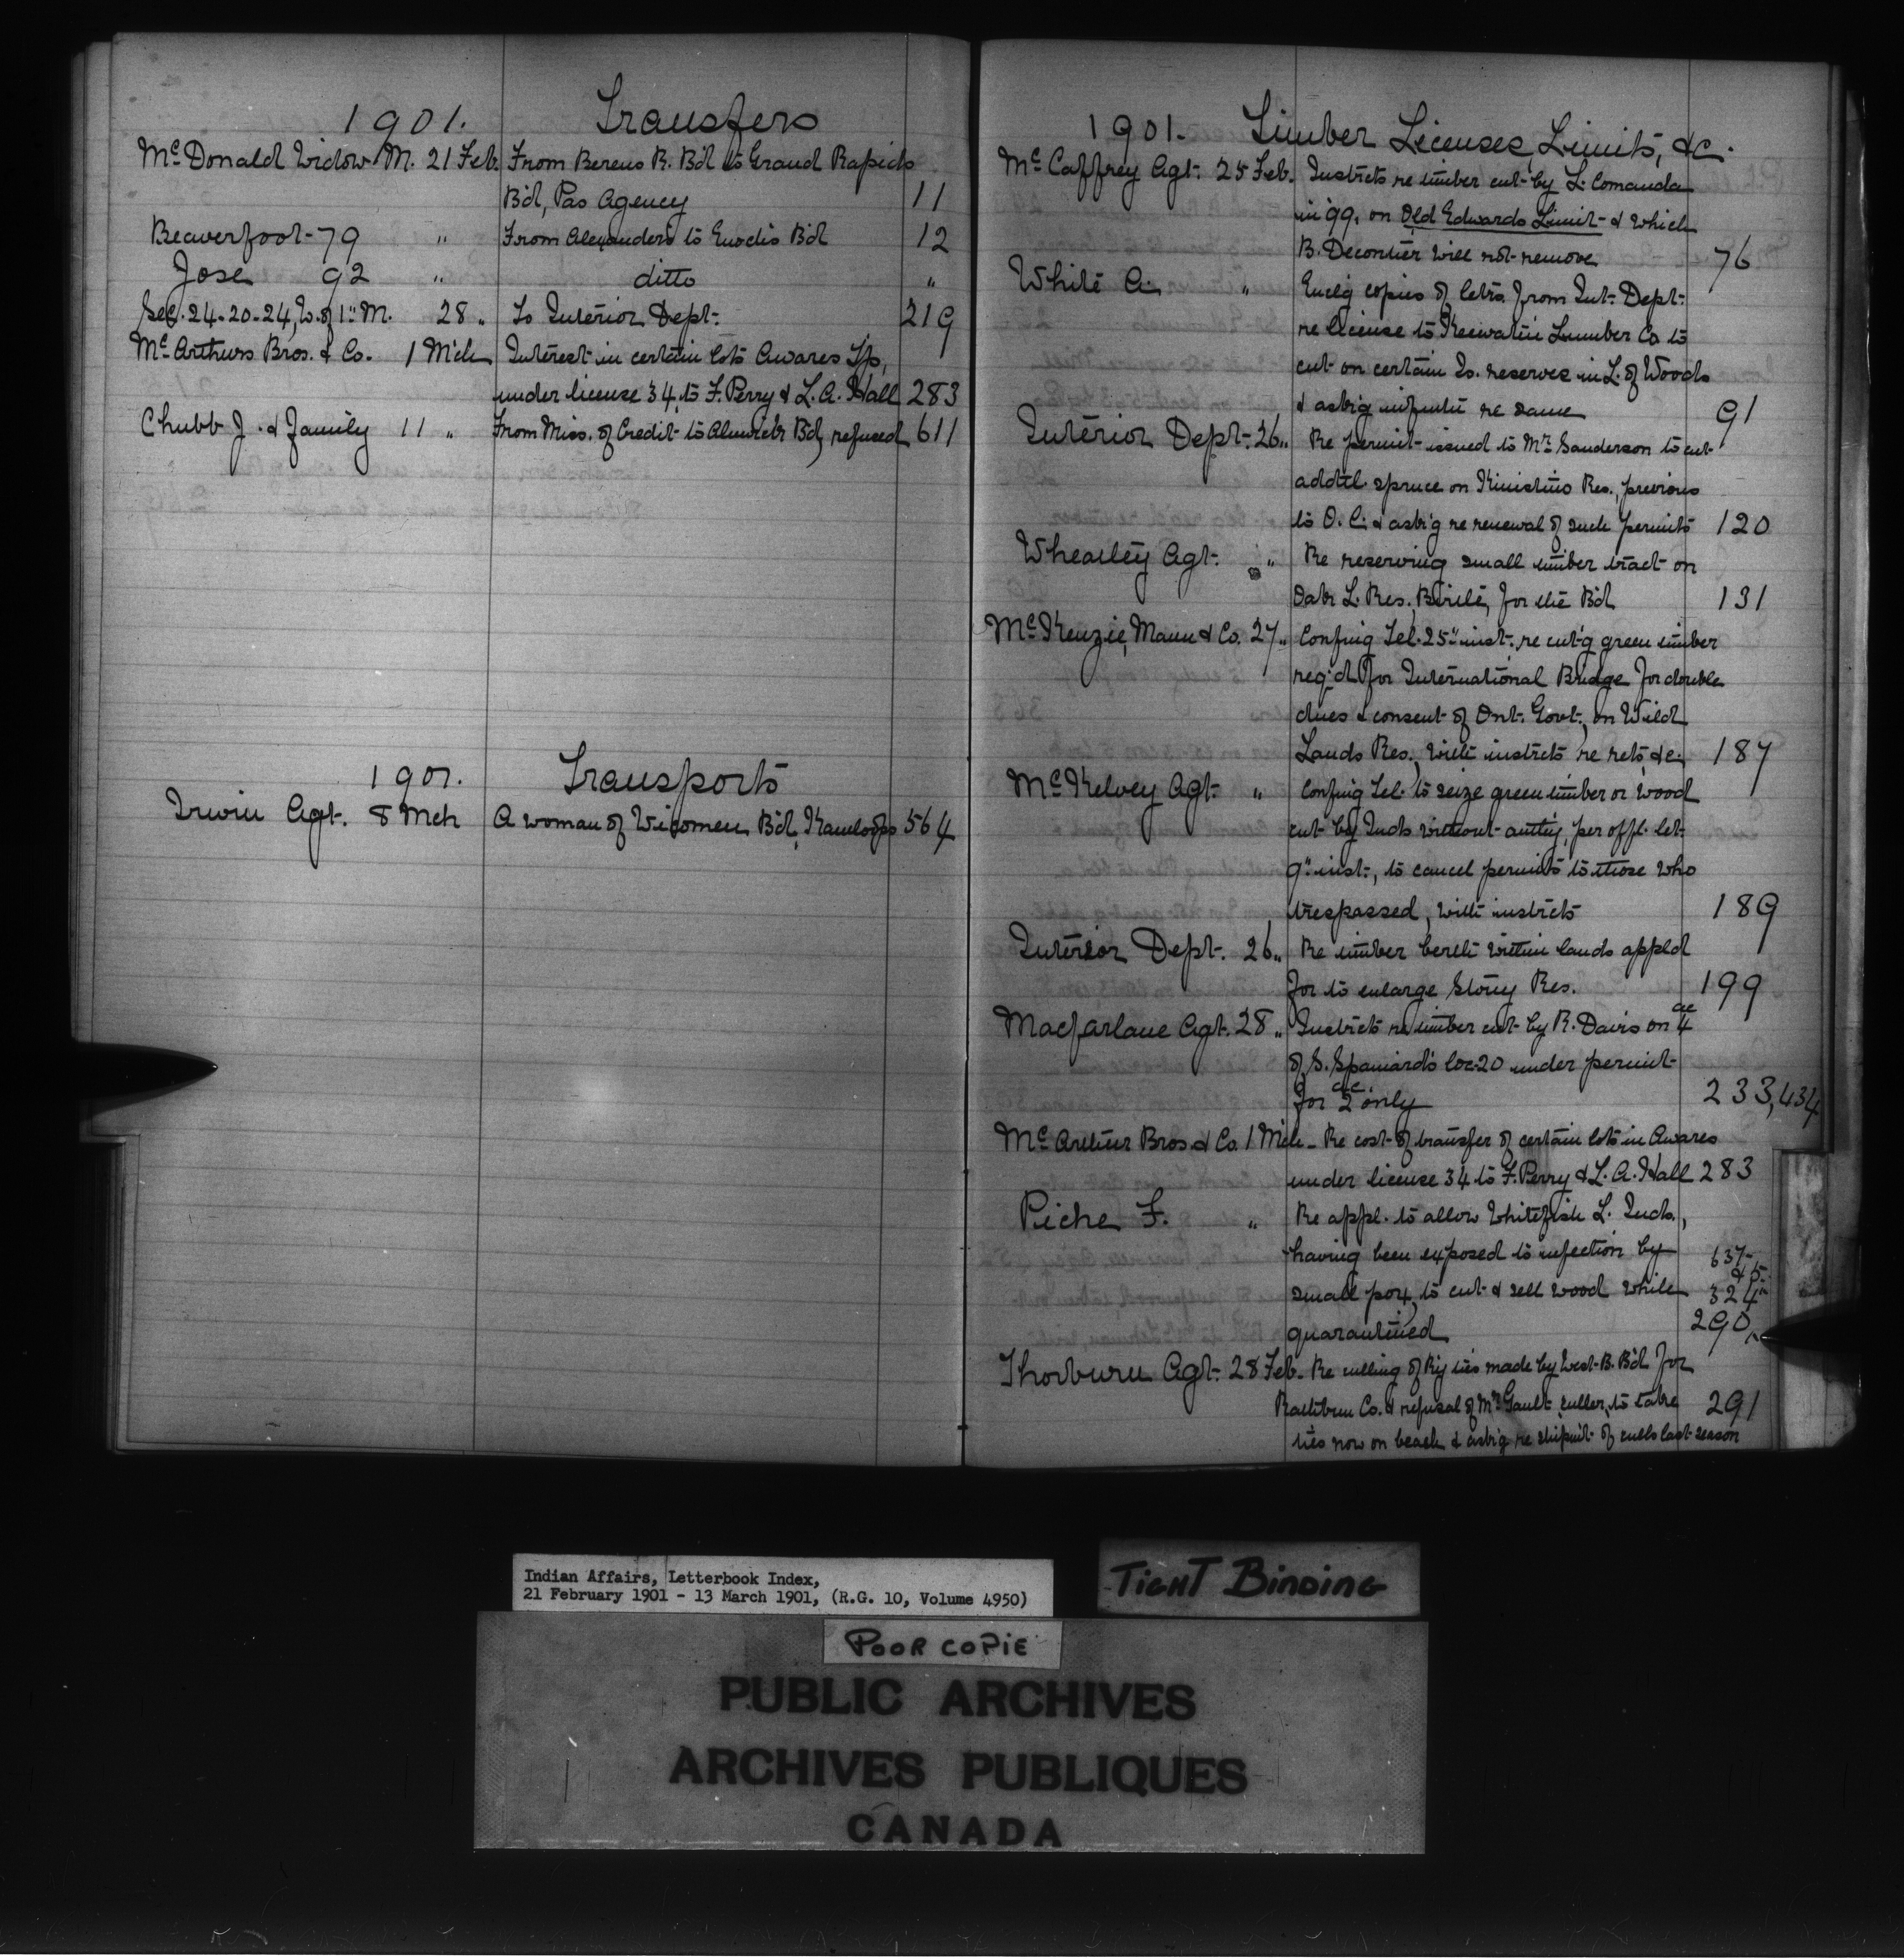 1901. Transfers
McDonald Widow M. 21 Feb. From Berens R. B'd to Grand Rapids
B'd, Pas Agency 11
Beaverfoot 79 " From Alexanders to Enochs B'd 12
Jose 92 " ditto "
Sec. 24-20-24, W. of 1" M. 28 " To Interior Dept. 219
McArthurs Bros. & Co. 1 Mch Interest in certain lots Awares Tp,
under license 34 to F. Perry & L. A. Hall 283
Chubb J. & Family 11 " From Miss. of Credit to Alnwick B'd, refused 611
1901. Transports
Irwin Agt. 8 Mch A woman of B'd, Kamloops 564
1901. Timber Licenses, Limits, &c.
McCaffrey Agt. 25 Feb. Instrcts re timber cut by L. Comanda
in '99, on Old Edwards Limit & which
B. Decontier will not remove 76
White A. " Encl'g copies of letrs. from Int. Dept.
re license to Keewatin Lumber Co to
cut on certain In. reserves in L. of Woods
& ask'g re same 91
Interior Dept. 26 " Re permit issued to Mr. Sanderson to cut
addtl. spruce on Kinistino Res., previous
to O. C. & ask'g re renewal of such permits 120
Whearley Agt. " Re reserving small timber tract on
Oak L. Res., Birtle, for the B'd 131
McKenzie, Mann & Co. 27 " Confing Tel. 25" inst. re cut'g green timber
req'd for International Bridge for double
dues & consent of Ont. Govt. on Wild
Lands Res., with instrcts re rets, &c. 187
McKelvey Agt. " Confing Tel. to seize green timber or wood
cut by Inds without authy, per offl. let.
9" inst., to cancel permits to those who
trespassed, with instrcts 189
Interior Dept. 26 " Re timber berth within lands appld
for to enlarge Stony Res. 199
Macfarlane Agt. 28 " Instrcts re timber cut by R. Davis on 4 ac
of S. Spaniard's loc. 20 under permit
for 2 ac. only 233, 434
McArthur Bros. & Co. 1 Mch Re cost of transfer of certain lots in Awares
under license 34 to F. Perry & L. A. Hall 283
Piche F. " Re appl. to allow Whitefish L. Inds.,
having been exposed to infection by 637
small pox, to cut & sell wood while 324
quarantined 290
Thorburn Agt. 28 Feb. Re culling of Ry ties made by West B. B'd for
Rathbun Co. & refusal of Mr. Gault, culler, to take 291
ties now on beach & ask'g re shipm't of culls last season
Indian Affairs, Letterbook Index,
21 February 1901 - 13 March 1901, (R.G. 10, Volume 4950)
TIGHT BINDING
POOR COPIE
PUBLIC ARCHIVES
ARCHIVES PUBLIQUES
CANADA